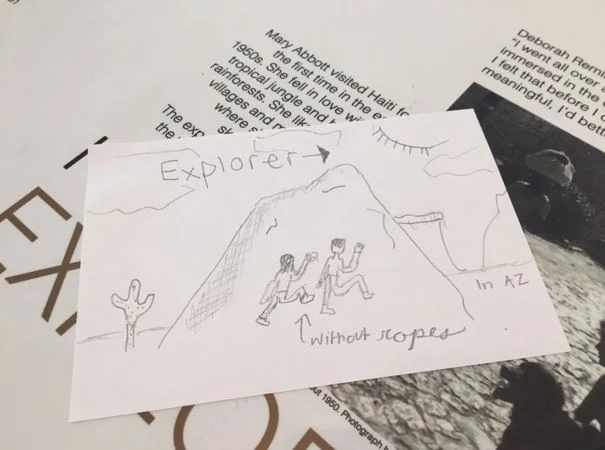 Mary Abbott visited Haiti
the first time in the
1950s. She fell in love
tropical jungle and
rainforests. She
villages and
where
The
the
Deborah
"I went all over
immersed in the
I felt that before I
meaningful, I'd
EX
Explorer →
In AZ
without ropes
1950. Photograph